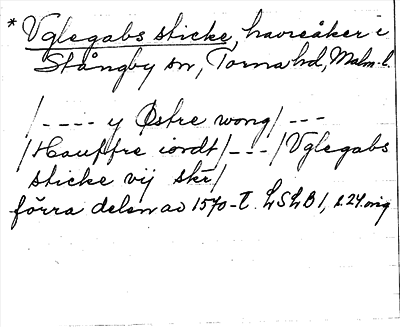 * Vglegabs sticke, havreåker i
Stångby sn, Torna hd, Malm. l.
/ - - - - y Østre wong / - - -
/ Hauffre iordt / - - - / Vglegabs
sticke vij skr /
förra delen av 1570-t. LSLB 1, s. 24. orig